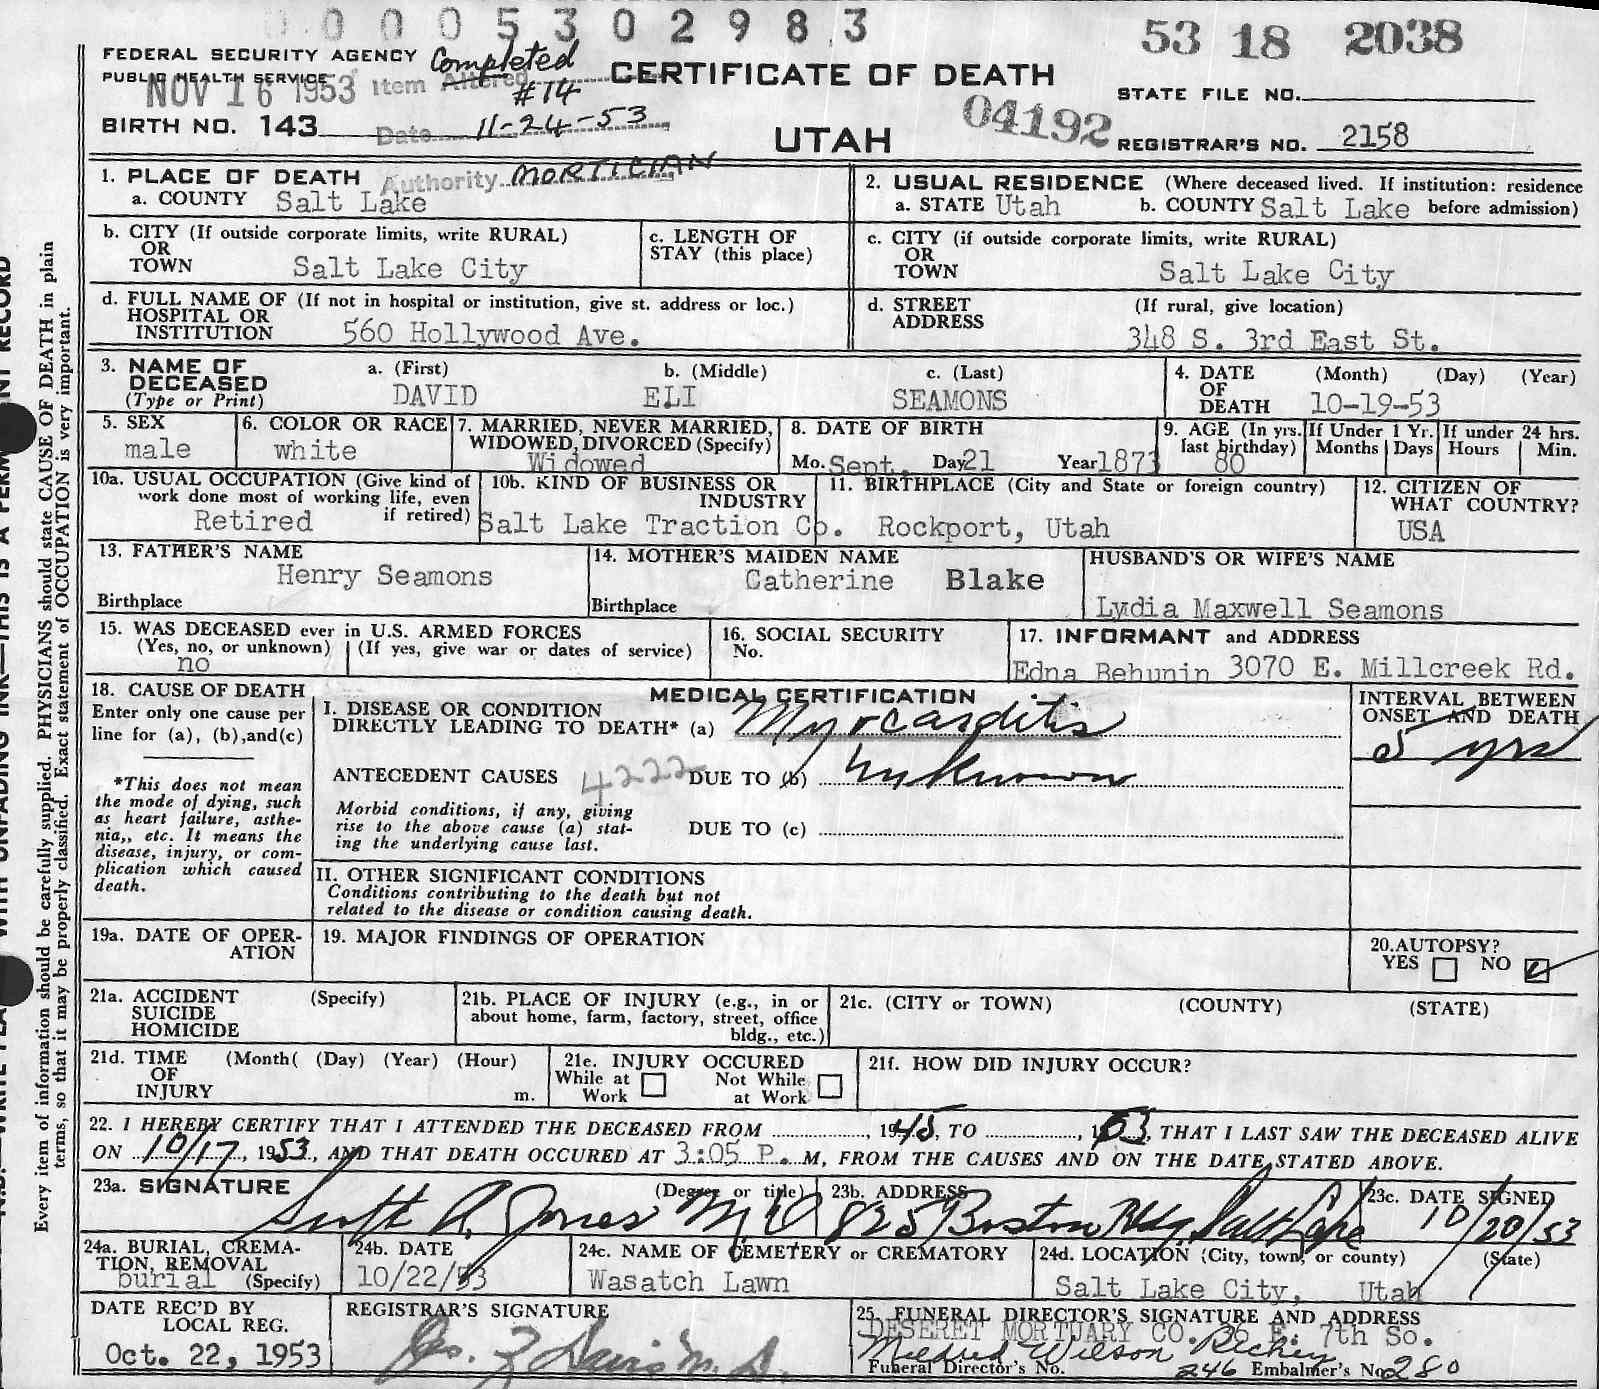 0 0 0 0 5 3 0 2 9 8 3
53 18 2038
FEDERAL SECURITY AGENCY
PUBLIC HEALTH SERVICE
Completed
NOV 16 1953 Item Altered #14
CERTIFICATE OF DEATH
STATE FILE NO.
BIRTH NO. 143
Date 11-24-53
UTAH
04192
REGISTRAR'S NO. 2158
Authority MORTICIAN
1. PLACE OF DEATH
a. COUNTY Salt Lake
2. USUAL RESIDENCE (Where deceased lived. If institution: residence
a. STATE Utah b. COUNTY Salt Lake before admission)
b. CITY (If outside corporate limits, write RURAL)
OR
TOWN Salt Lake City
c. LENGTH OF
STAY (this place)
c. CITY (if outside corporate limits, write RURAL)
OR
TOWN Salt Lake City
d. FULL NAME OF (If not in hospital or institution, give st. address or loc.)
HOSPITAL OR
INSTITUTION 560 Hollywood Ave.
d. STREET (If rural, give location)
ADDRESS
348 S. 3rd East St.
3. NAME OF
DECEASED
(Type or Print)
a. (First) b. (Middle) c. (Last)
DAVID ELI SEAMONS
4. DATE (Month) (Day) (Year)
OF
DEATH 10-19-53
5. SEX
male
6. COLOR OR RACE
white
7. MARRIED, NEVER MARRIED,
WIDOWED, DIVORCED (Specify)
Widowed
8. DATE OF BIRTH
Mo. Sept. Day 21 Year 1873
9. AGE (In yrs.
last birthday)
80
If Under 1 Yr.
Months Days
If under 24 hrs.
Hours Min.
10a. USUAL OCCUPATION (Give kind of
work done most of working life, even
if retired)
Retired
10b. KIND OF BUSINESS OR
INDUSTRY
Salt Lake Traction Co.
11. BIRTHPLACE (City and State or foreign country)
Rockport, Utah
12. CITIZEN OF
WHAT COUNTRY?
USA
13. FATHER'S NAME
Henry Seamons
Birthplace
14. MOTHER'S MAIDEN NAME
Catherine Blake
Birthplace
HUSBAND'S OR WIFE'S NAME
Lydia Maxwell Seamons
15. WAS DECEASED ever in U.S. ARMED FORCES
(Yes, no, or unknown) (If yes, give war or dates of service)
no
16. SOCIAL SECURITY
No.
17. INFORMANT and ADDRESS
Edna Behunin 3070 E. Millcreek Rd.
18. CAUSE OF DEATH
Enter only one cause per
line for (a), (b),and(c)
*This does not mean
the mode of dying, such
as heart failure, asthe-
nia,, etc. It means the
disease, injury, or com-
plication which caused
death.
MEDICAL CERTIFICATION
I. DISEASE OR CONDITION
DIRECTLY LEADING TO DEATH* (a) Myocarditis
INTERVAL BETWEEN
ONSET AND DEATH
5 yrs
ANTECEDENT CAUSES 4222 DUE TO (b) Unknown
Morbid conditions, if any, giving
rise to the above cause (a) stat-
ing the underlying cause last.
DUE TO (c)
II. OTHER SIGNIFICANT CONDITIONS
Conditions contributing to the death but not
related to the disease or condition causing death.
19a. DATE OF OPER-
ATION
19. MAJOR FINDINGS OF OPERATION
20.AUTOPSY?
YES NO
21a. ACCIDENT (Specify)
SUICIDE
HOMICIDE
21b. PLACE OF INJURY (e.g., in or
about home, farm, factory, street, office
bldg., etc.)
21c. (CITY or TOWN) (COUNTY) (STATE)
21d. TIME (Month( (Day) (Year) (Hour)
OF
INJURY m.
21e. INJURY OCCURED
While at Not While
Work at Work
21f. HOW DID INJURY OCCUR?
22. I HEREBY CERTIFY THAT I ATTENDED THE DECEASED FROM , 1945, TO , 153, THAT I LAST SAW THE DECEASED ALIVE
ON 10/17, 1953, AND THAT DEATH OCCURED AT 3:05 P. M, FROM THE CAUSES AND ON THE DATE STATED ABOVE.
23a. SIGNATURE (Degree or title)
Scott A. Jones MD
23b. ADDRESS
825 Boston Bldg. Salt Lake
23c. DATE SIGNED
10/20/53
24a. BURIAL, CREMA-
TION, REMOVAL
burial (Specify)
24b. DATE
10/22/53
24c. NAME OF CEMETERY or CREMATORY
Wasatch Lawn
24d. LOCATION (City, town, or county) (State)
Salt Lake City, Utah
DATE REC'D BY
LOCAL REG.
Oct. 22, 1953
REGISTRAR'S SIGNATURE
Davis M. D.
25. FUNERAL DIRECTOR'S SIGNATURE AND ADDRESS
DESERET MORTUARY CO. 36 E. 7th So.
Mildred Wilson Richey
Funeral Director's No. 246 Embalmer's No. 280
Every item of information should be carefully supplied. PHYSICIANS should state CAUSE OF DEATH in plain
terms, so that it may be properly classified. Exact statement of OCCUPATION is very important.